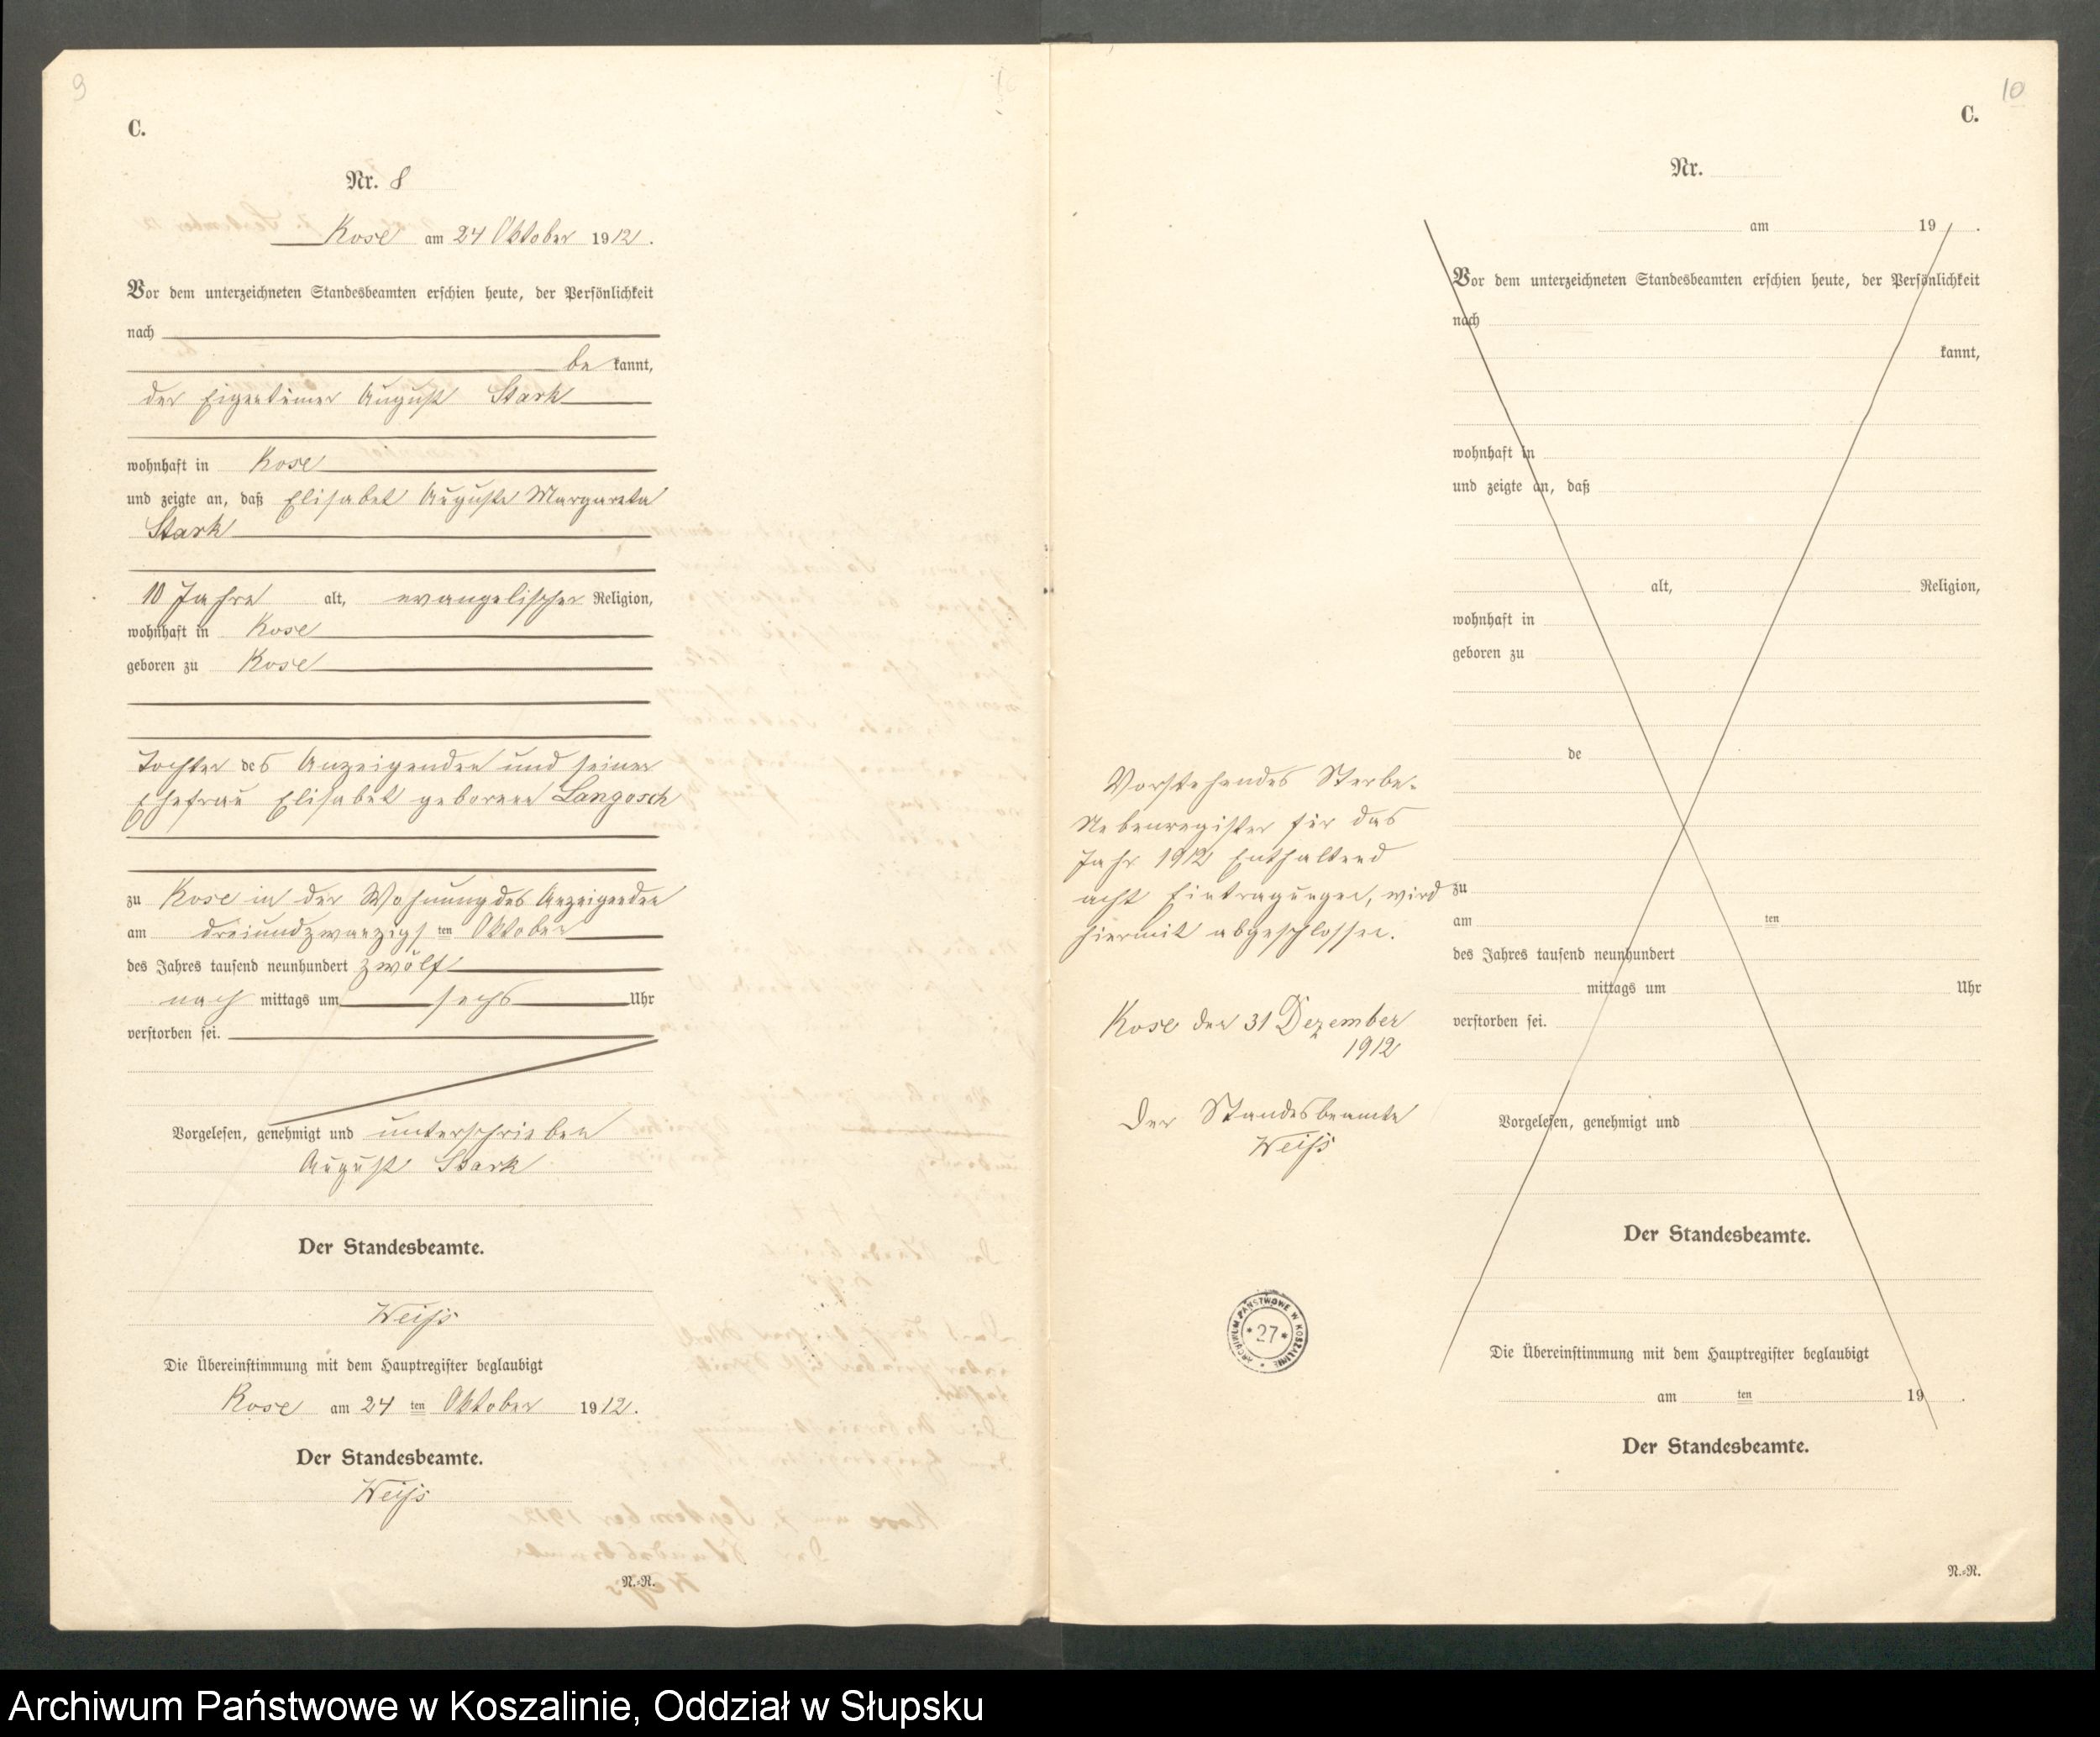 9
C.
Nr. 8
Kose am 24 Oktober 1912.
Vor dem unterzeichneten Standesbeamten erschien heute, der Persönlichkeit
nach
be kannt,
der Eigentümer August Stark
wohnhaft in Kose
und zeigte an, daß Elisabet Auguste Margareta
Stark
10 Jahre alt, evangelischer Religion,
wohnhaft in Kose
geboren zu Kose
Tochter des Anzeigenden und seiner
Ehefrau Elisabet geborene Langosch
zu Kose in der Wohnung des Anzeigenden
am dreiundzwanzigsten Oktober
des Jahres tausend neunhundert zwölf
nach mittags um sechs Uhr
verstorben sei.
Vorgelesen, genehmigt und unterschrieben
August Stark
Der Standesbeamte.
Weiß
Die Übereinstimmung mit dem Hauptregister beglaubigt
Kose am 24 ten Oktober 1912.
Der Standesbeamte.
Weiß
N.-R.
10
C.
Nr.
am 19 .
Vor dem unterzeichneten Standesbeamten erschien heute, der Persönlichkeit
nach
kannt,
wohnhaft in
und zeigte an, daß
alt, Religion,
wohnhaft in
geboren zu
de
zu
am ten
des Jahres tausend neunhundert
mittags um Uhr
verstorben sei.
Vorgelesen, genehmigt und
Der Standesbeamte.
Die Übereinstimmung mit dem Hauptregister beglaubigt
am ten 19 .
Der Standesbeamte.
N.-R.
Vorstehendes Sterbe-
Nebenregister für das
Jahr 1912 Enthaltend
acht Eintragungen, wird
hiermit abgeschlossen.
Kose den 31 Dezember
1912
Der Standesbeamte
Weiß
ARCHIWUM PAŃSTWOWE W KOSZALINIE
*27*
Archiwum Państwowe w Koszalinie, Oddział w Słupsku